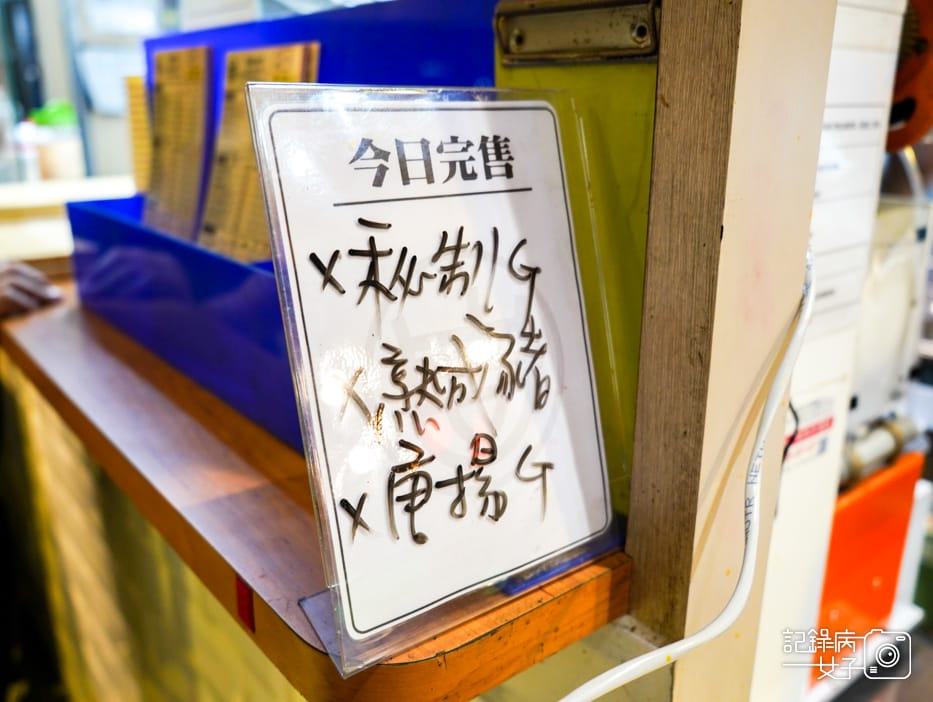 今日完售
x秘制G
x熟成豬
x唐揚G
記錄病
女子